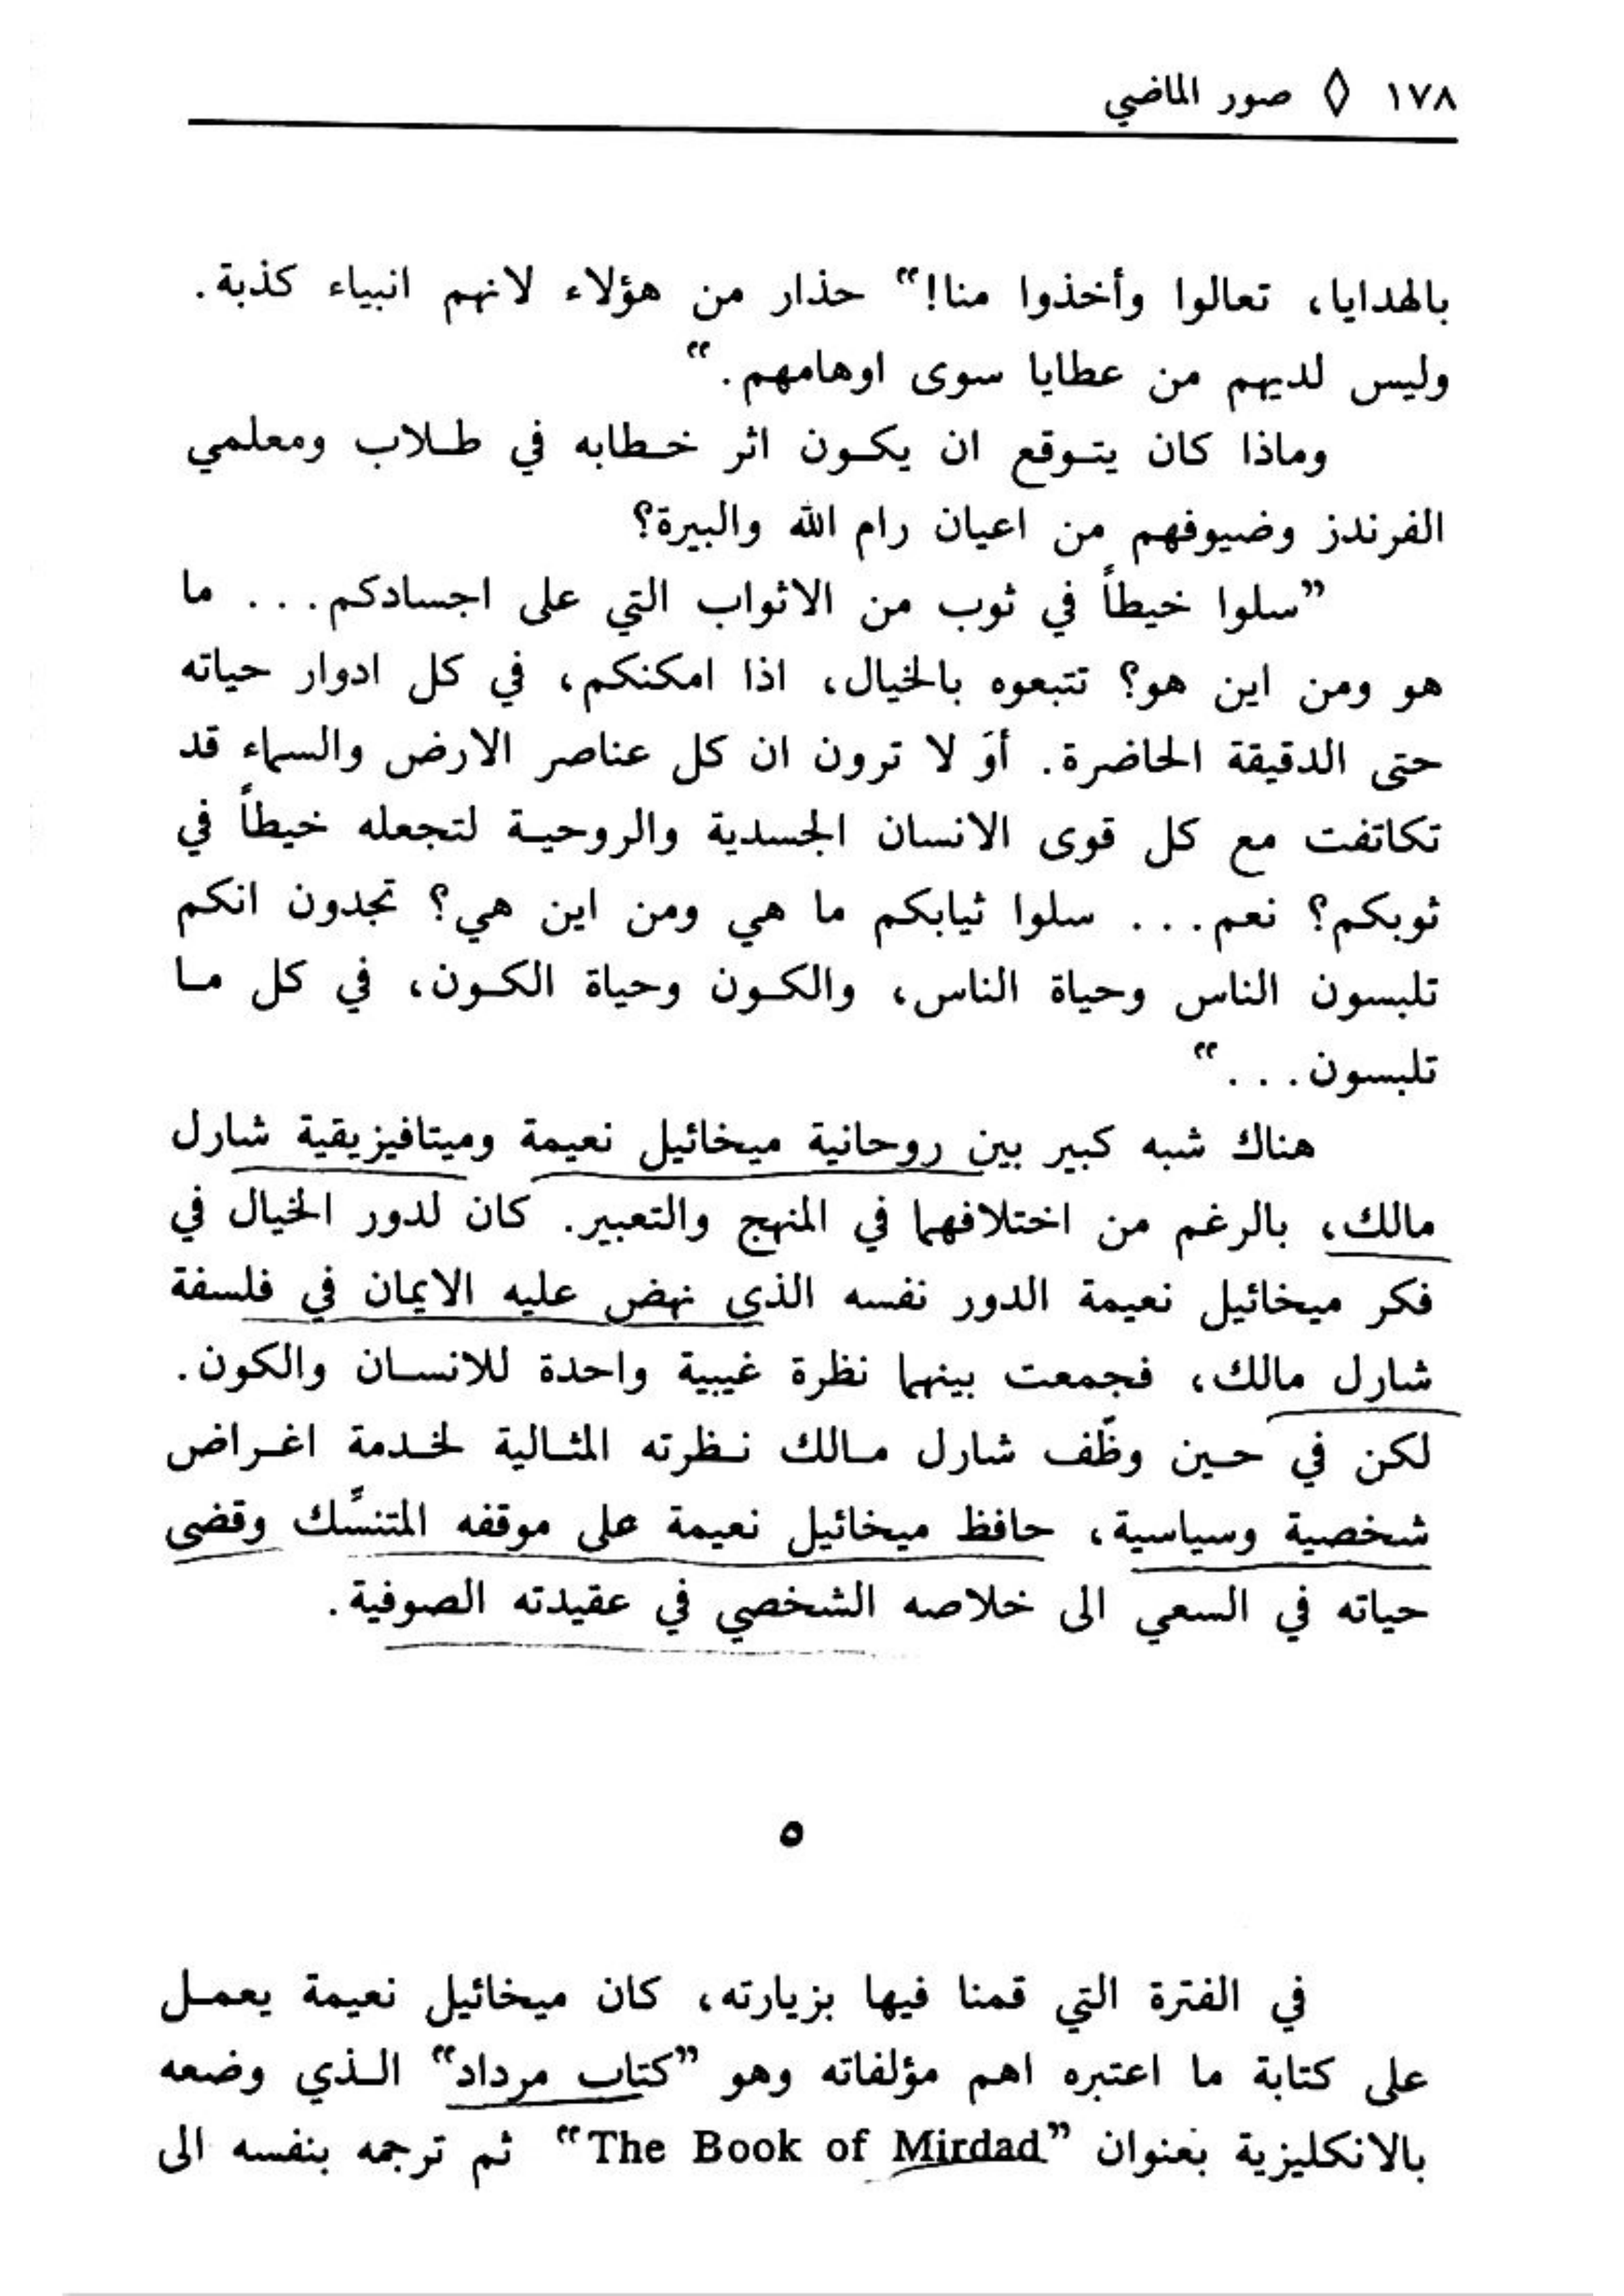 ١٧٨ ◊ صور الماضي
بالهدايا، تعالوا وأخذوا منا!“ حذار من هؤلاء لانهم انبياء كذبة.
وليس لديهم من عطايا سوى اوهامهم.“
وماذا كان يتوقع ان يكون اثر خطابه في طلاب ومعلمي
الفرندز وضيوفهم من اعيان رام الله والبيرة؟
”سلوا خيطاً في ثوب من الاثواب التي على اجسادكم... ما
هو ومن اين هو؟ تتبعوه بالخيال، اذا امكنكم، في كل ادوار حياته
حتى الدقيقة الحاضرة. أوَ لا ترون ان كل عناصر الارض والسماء قد
تكاتفت مع كل قوى الانسان الجسدية والروحية لتجعله خيطاً في
ثوبكم؟ نعم... سلوا ثيابكم ما هي ومن اين هي؟ تجدون انكم
تلبسون الناس وحياة الناس، والكون وحياة الكون، في كل ما
تلبسون...“
هناك شبه كبير بين روحانية ميخائيل نعيمة وميتافيزيقية شارل
مالك، بالرغم من اختلافهما في المنهج والتعبير. كان لدور الخيال في
فكر ميخائيل نعيمة الدور نفسه الذي نهض عليه الايمان في فلسفة
شارل مالك، فجمعت بينهما نظرة غيبية واحدة للانسان والكون.
لكن في حين وظّف شارل مالك نظرته المثالية لخدمة اغراض
شخصية وسياسية، حافظ ميخائيل نعيمة على موقفه المتنسّك وقضى
حياته في السعي الى خلاصه الشخصي في عقيدته الصوفية.
٥
في الفترة التي قمنا فيها بزيارته، كان ميخائيل نعيمة يعمل
على كتابة ما اعتبره اهم مؤلفاته وهو ”كتاب مرداد“ الذي وضعه
بالانكليزية بعنوان ”The Book of Mirdad“ ثم ترجمه بنفسه الى